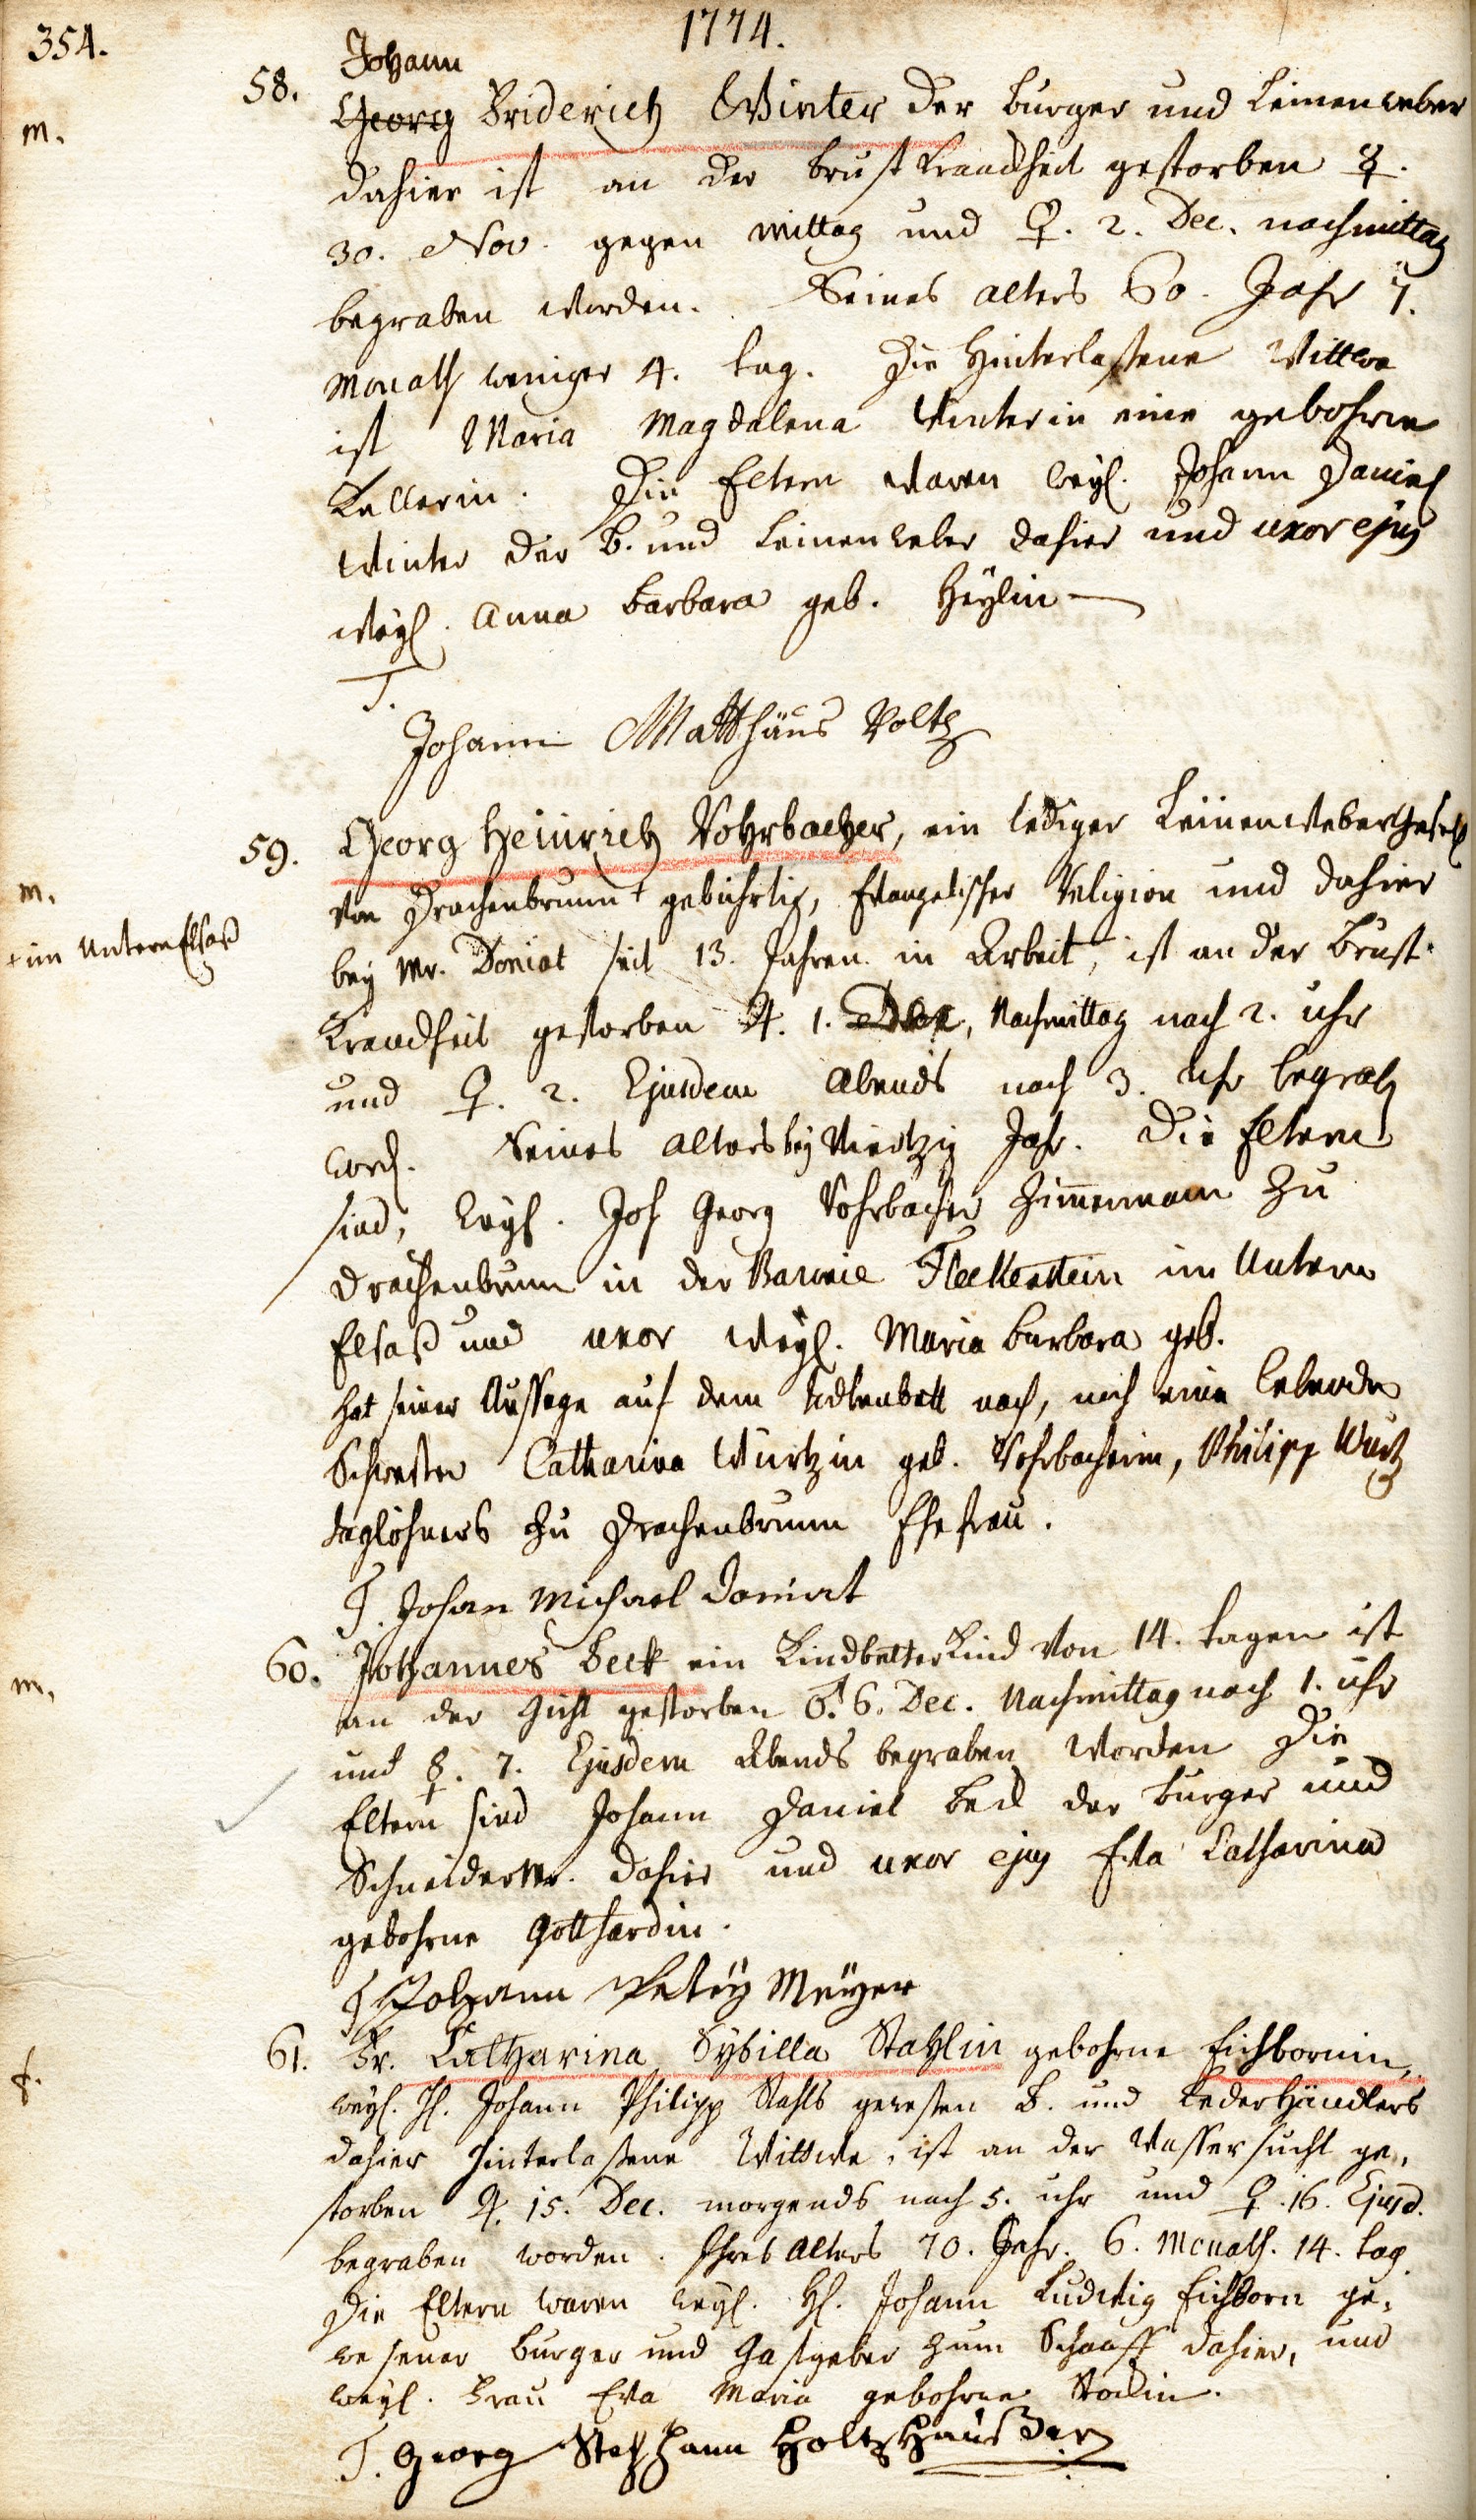 354.
1774.
58. Johann
m. Georg Friderich Winter der burger und Leinenweber
dahier ist an der brust Kranckheit gestorben ☿.
30. Nov. gegen mittag und ♀. 2. Dec. nachmittag
begraben worden. Seines alters 60. Jahr 7.
Monath weniger 4. tag. Die Hinterlaßene Wittwe
ist Maria Magdalena Winterin eine gebohrne
Kellerin. Die Eltern waren weyl. Johann Daniel
Winter der b. und Leinenweber dahier und uxor ejus
weyl. Anna Barbara geb. Heylin
T.
Johann Matthäus Voltz
59. Georg Heinrich Vohrbacher, ein lediger Leinenwebergesell
m. von Drachenbrunn + gebürtig, Evangelischer Religion und dahier
+ im Untern Elsaß
bey Mr. Doniat seit 13. Jahren in Arbeit, ist an der Brust-
Kranckheit gestorben ♃. 1. Dec., Nachmittag nach 2. uhr
und ♀. 2. Ejusdem Abends nach 3. Uhr begrab
word. Seines alters bey Viertzig Jahr. Die Eltern
sind, weyl. Joh Georg Vohrbacher Zimmermann zu
Drachenbrunn in der Baronie Fleckenstein im Untern
Elsaß und uxor weyl. Maria Barbara geb.
hat seiner Aussage auf dem Todtenbett nach, noch eine lebende
Schwester Catharina Wurtzin geb. Vohrbacherin, Philipp Wurtz
taglöhners zu Drachenbrunn Ehefrau.
T. Johan Michael Doniat
60. Johannes Beck ein Kindbetterkind von 14. tagen ist
m. an der Gicht gestorben ♂. 6. Dec. Nachmittag nach 1. uhr
und ☿. 7. Ejusdem Abends begraben worden Die
Eltern sind Johann Daniel Beck der burger und
Schneidermr. dahier und uxor ejus Eva Catharina
gebohrne Gotthardin.
T Johann Meyer
61. Fr. Catharina Sybilla Stahlin gebohrne Eichbornin,
f. weyl. H. Johann Philipp Stahls gewesten b. und Lederhändlers
dahier Hinterlaßene Wittwe, ist an der Wassersucht ge-
storben ♃. 15. Dec. morgends nach 5. uhr und ♀. 16. Ejusd.
begraben worden. Ihres alters 70. Jahr. 6. Monath. 14. tag
Die Eltern waren weyl. H. Johann Ludwig Eichborn ge-
wesener burger und Gastgeber zum Schaaff dahier, und
weyl. Frau Eva Maria gebohrne Stockin.
T. Georg Stephann Holtzhäußer